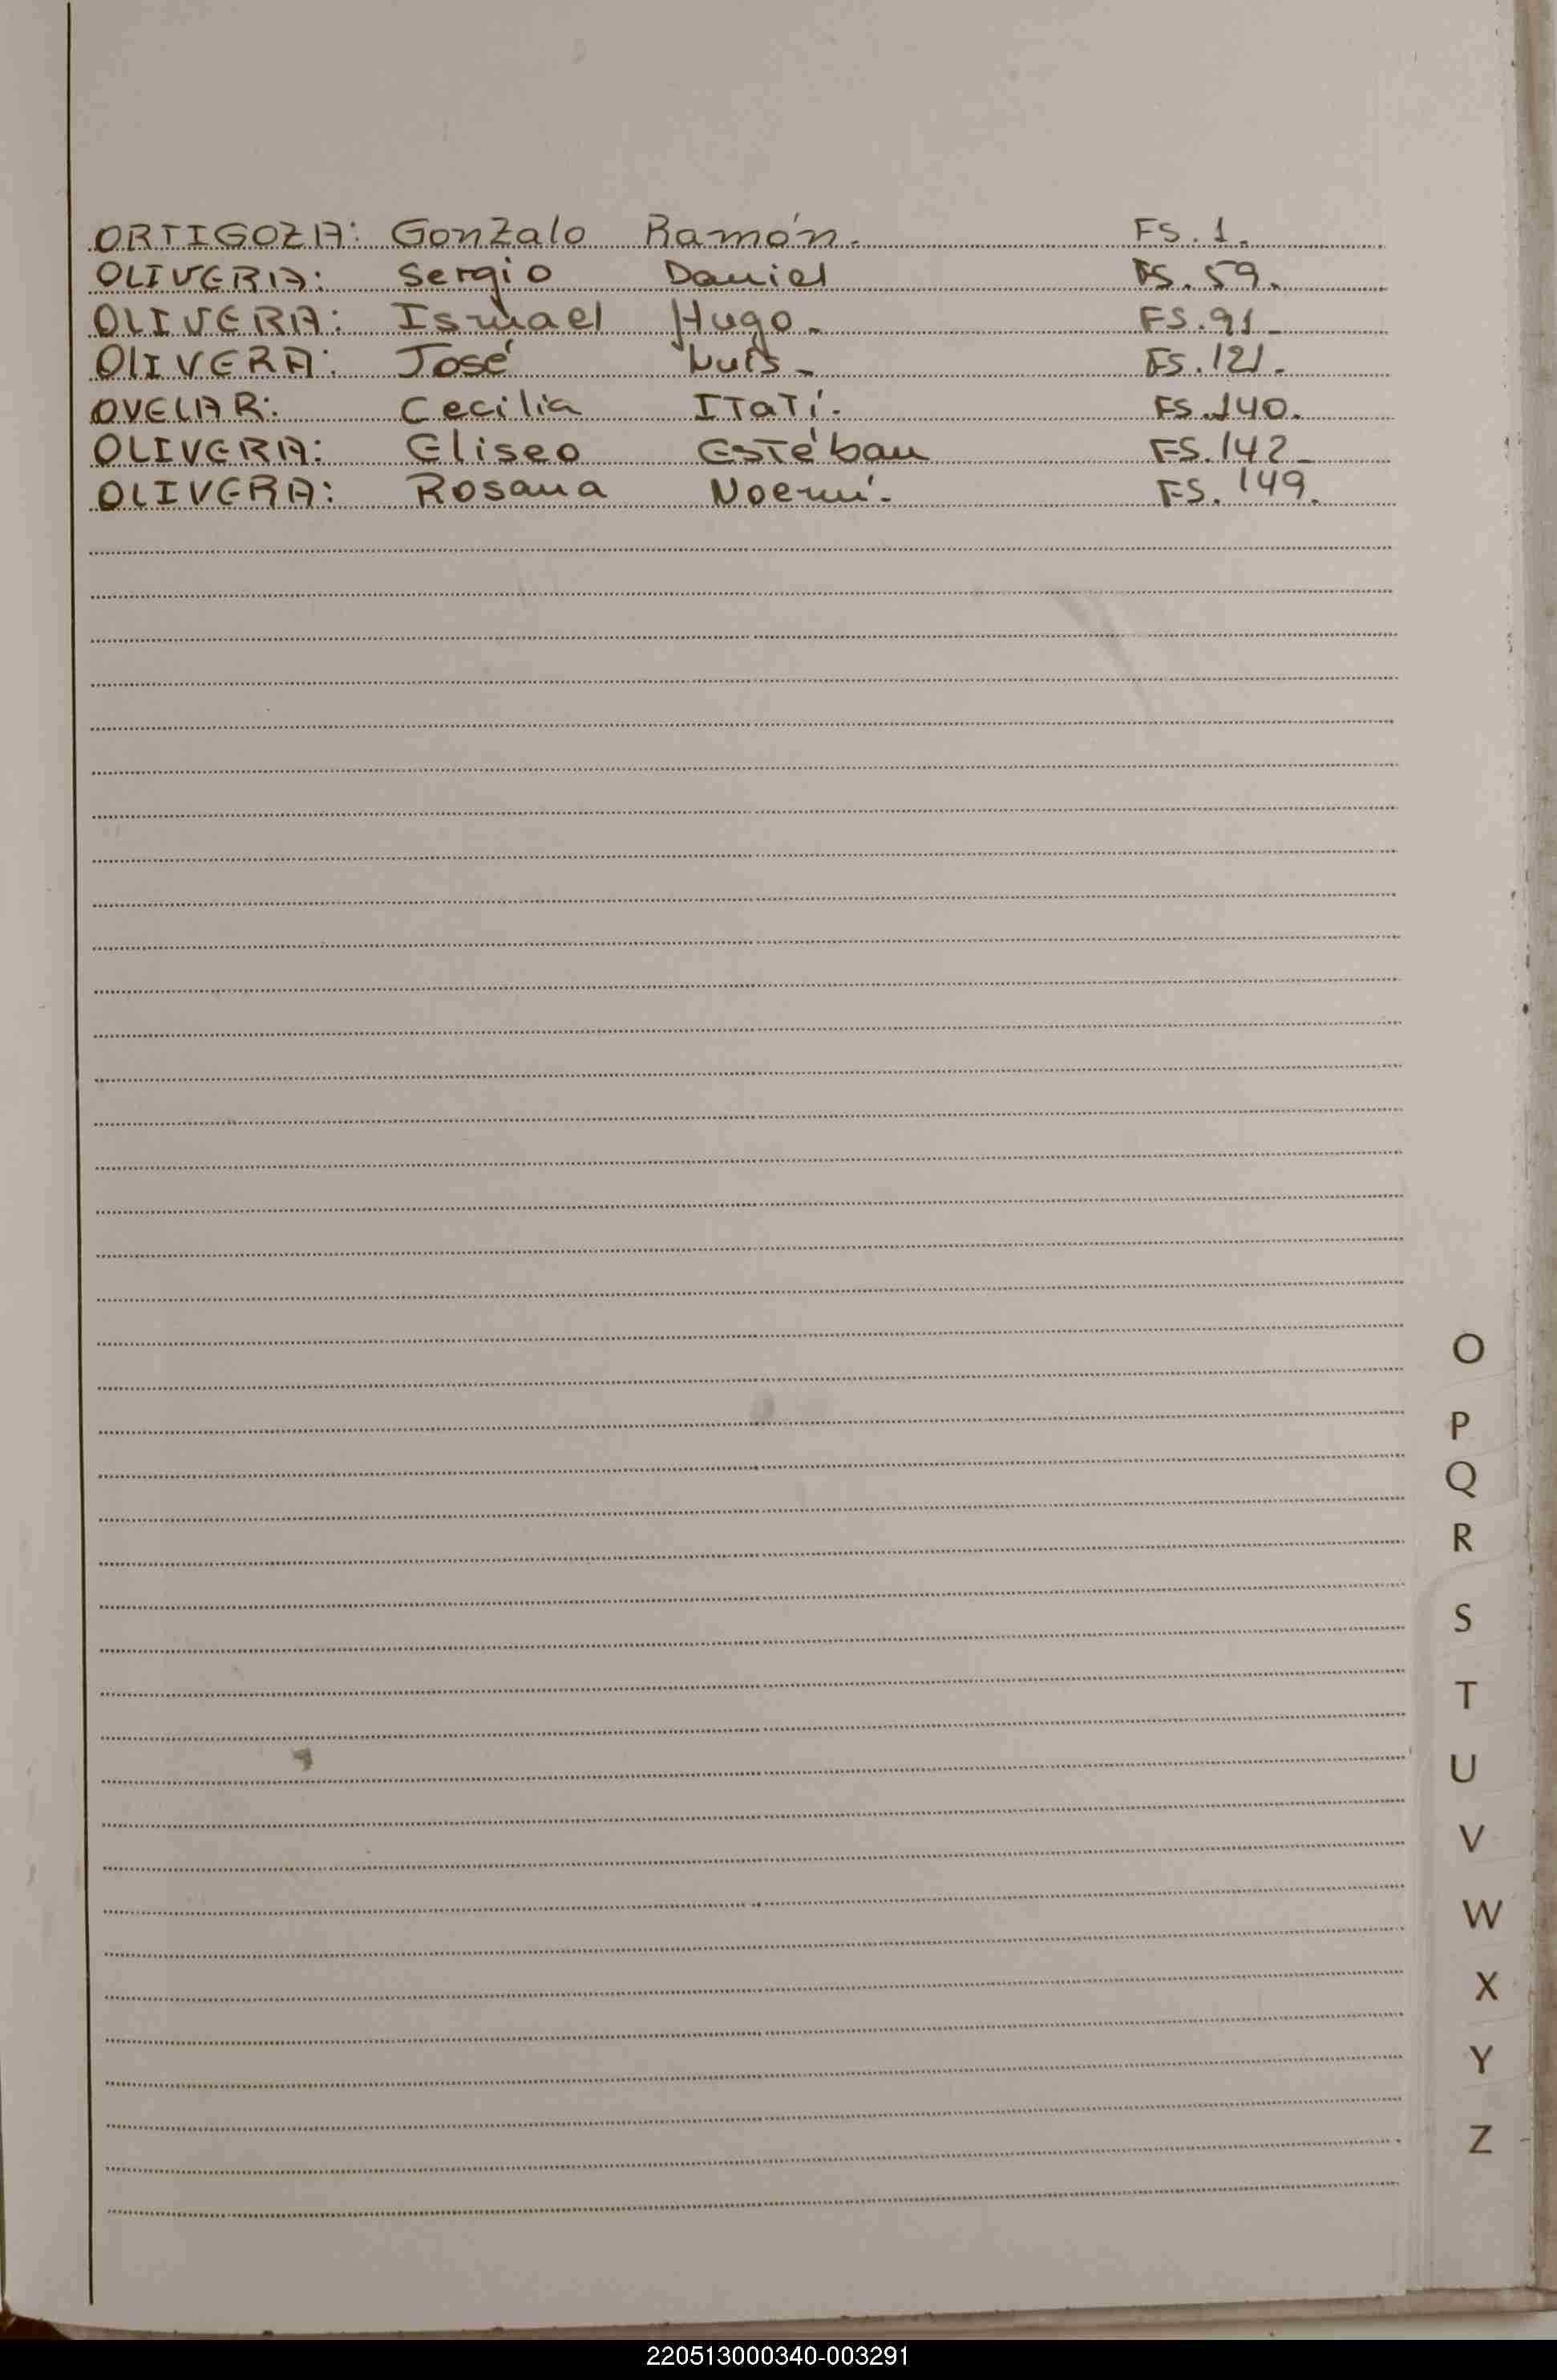 ORTIGOZA: Gonzalo Ramón. FS. 1.
OLIVERA: Sergio Daniel FS. 59.
OLIVERA: Ismael Hugo. FS. 91.
OLIVERA: José Luis. FS. 121.
OVELAR: Cecilia Itatí. FS. 140.
OLIVERA: Eliseo Estéban FS. 142.
OLIVERA: Rosana Noemí. FS. 149.
O
P
Q
R
S
T
U
V
W
X
Y
Z
220513000340-003291